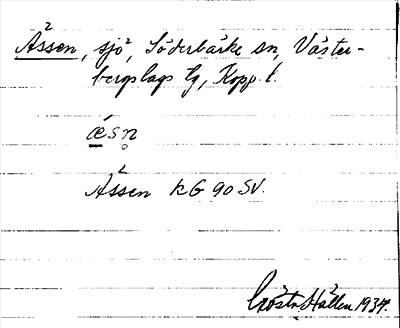 Ässen, sjö, Söderbärke sn, Väster-
bergslags tg, Kopp. l.
ǽsn̥
Ässen KG 90 SV.
Gösta Hallen 1934.